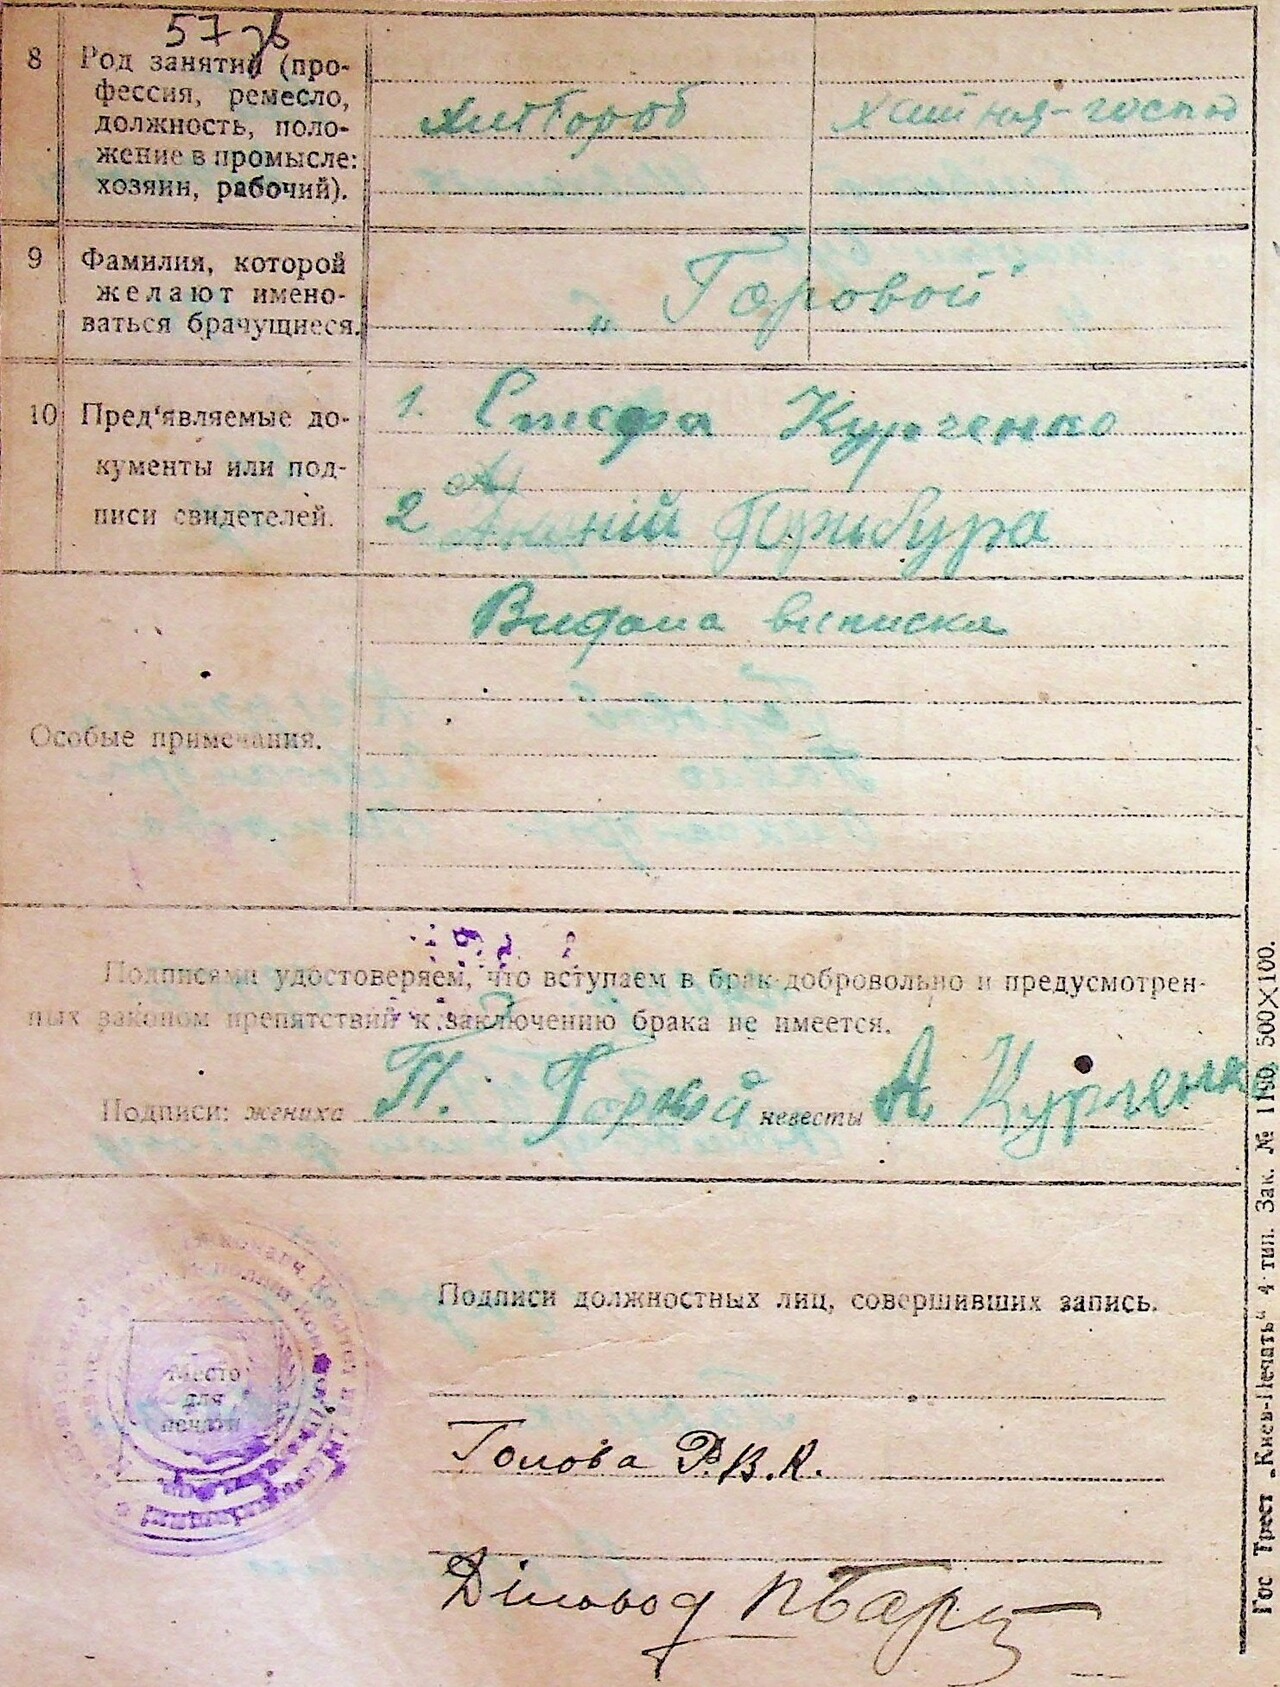 57 зв
8 Род занятий (про-
фессия, ремесло,
должность, поло-
жение в промысле:
хозяин, рабочий).
Хлібороб
Хатня-госпо
9 Фамилия, которой
желают имено-
ваться брачущиеся.
„ Горовой "
10 Пред'являемые до-
кументы или под-
писи свидетелей.
1. Стефа Курченко
2 Ананій Прибура
Видана виписка
Особые примечания.
Подписями удостоверяем, что вступаем в брак добровольно и предусмотрен-
ных законом препятствий к заключению брака не имеется.
Подписи: жениха П. Горовой невесты А Курченко
Место
для
печати
Подписи должностных лиц, совершивших запись.
Голова Р.В.К.
Діловод
Гос Трест „Киев-Печать" 4 тип. Зак. № 1180. 500X100.